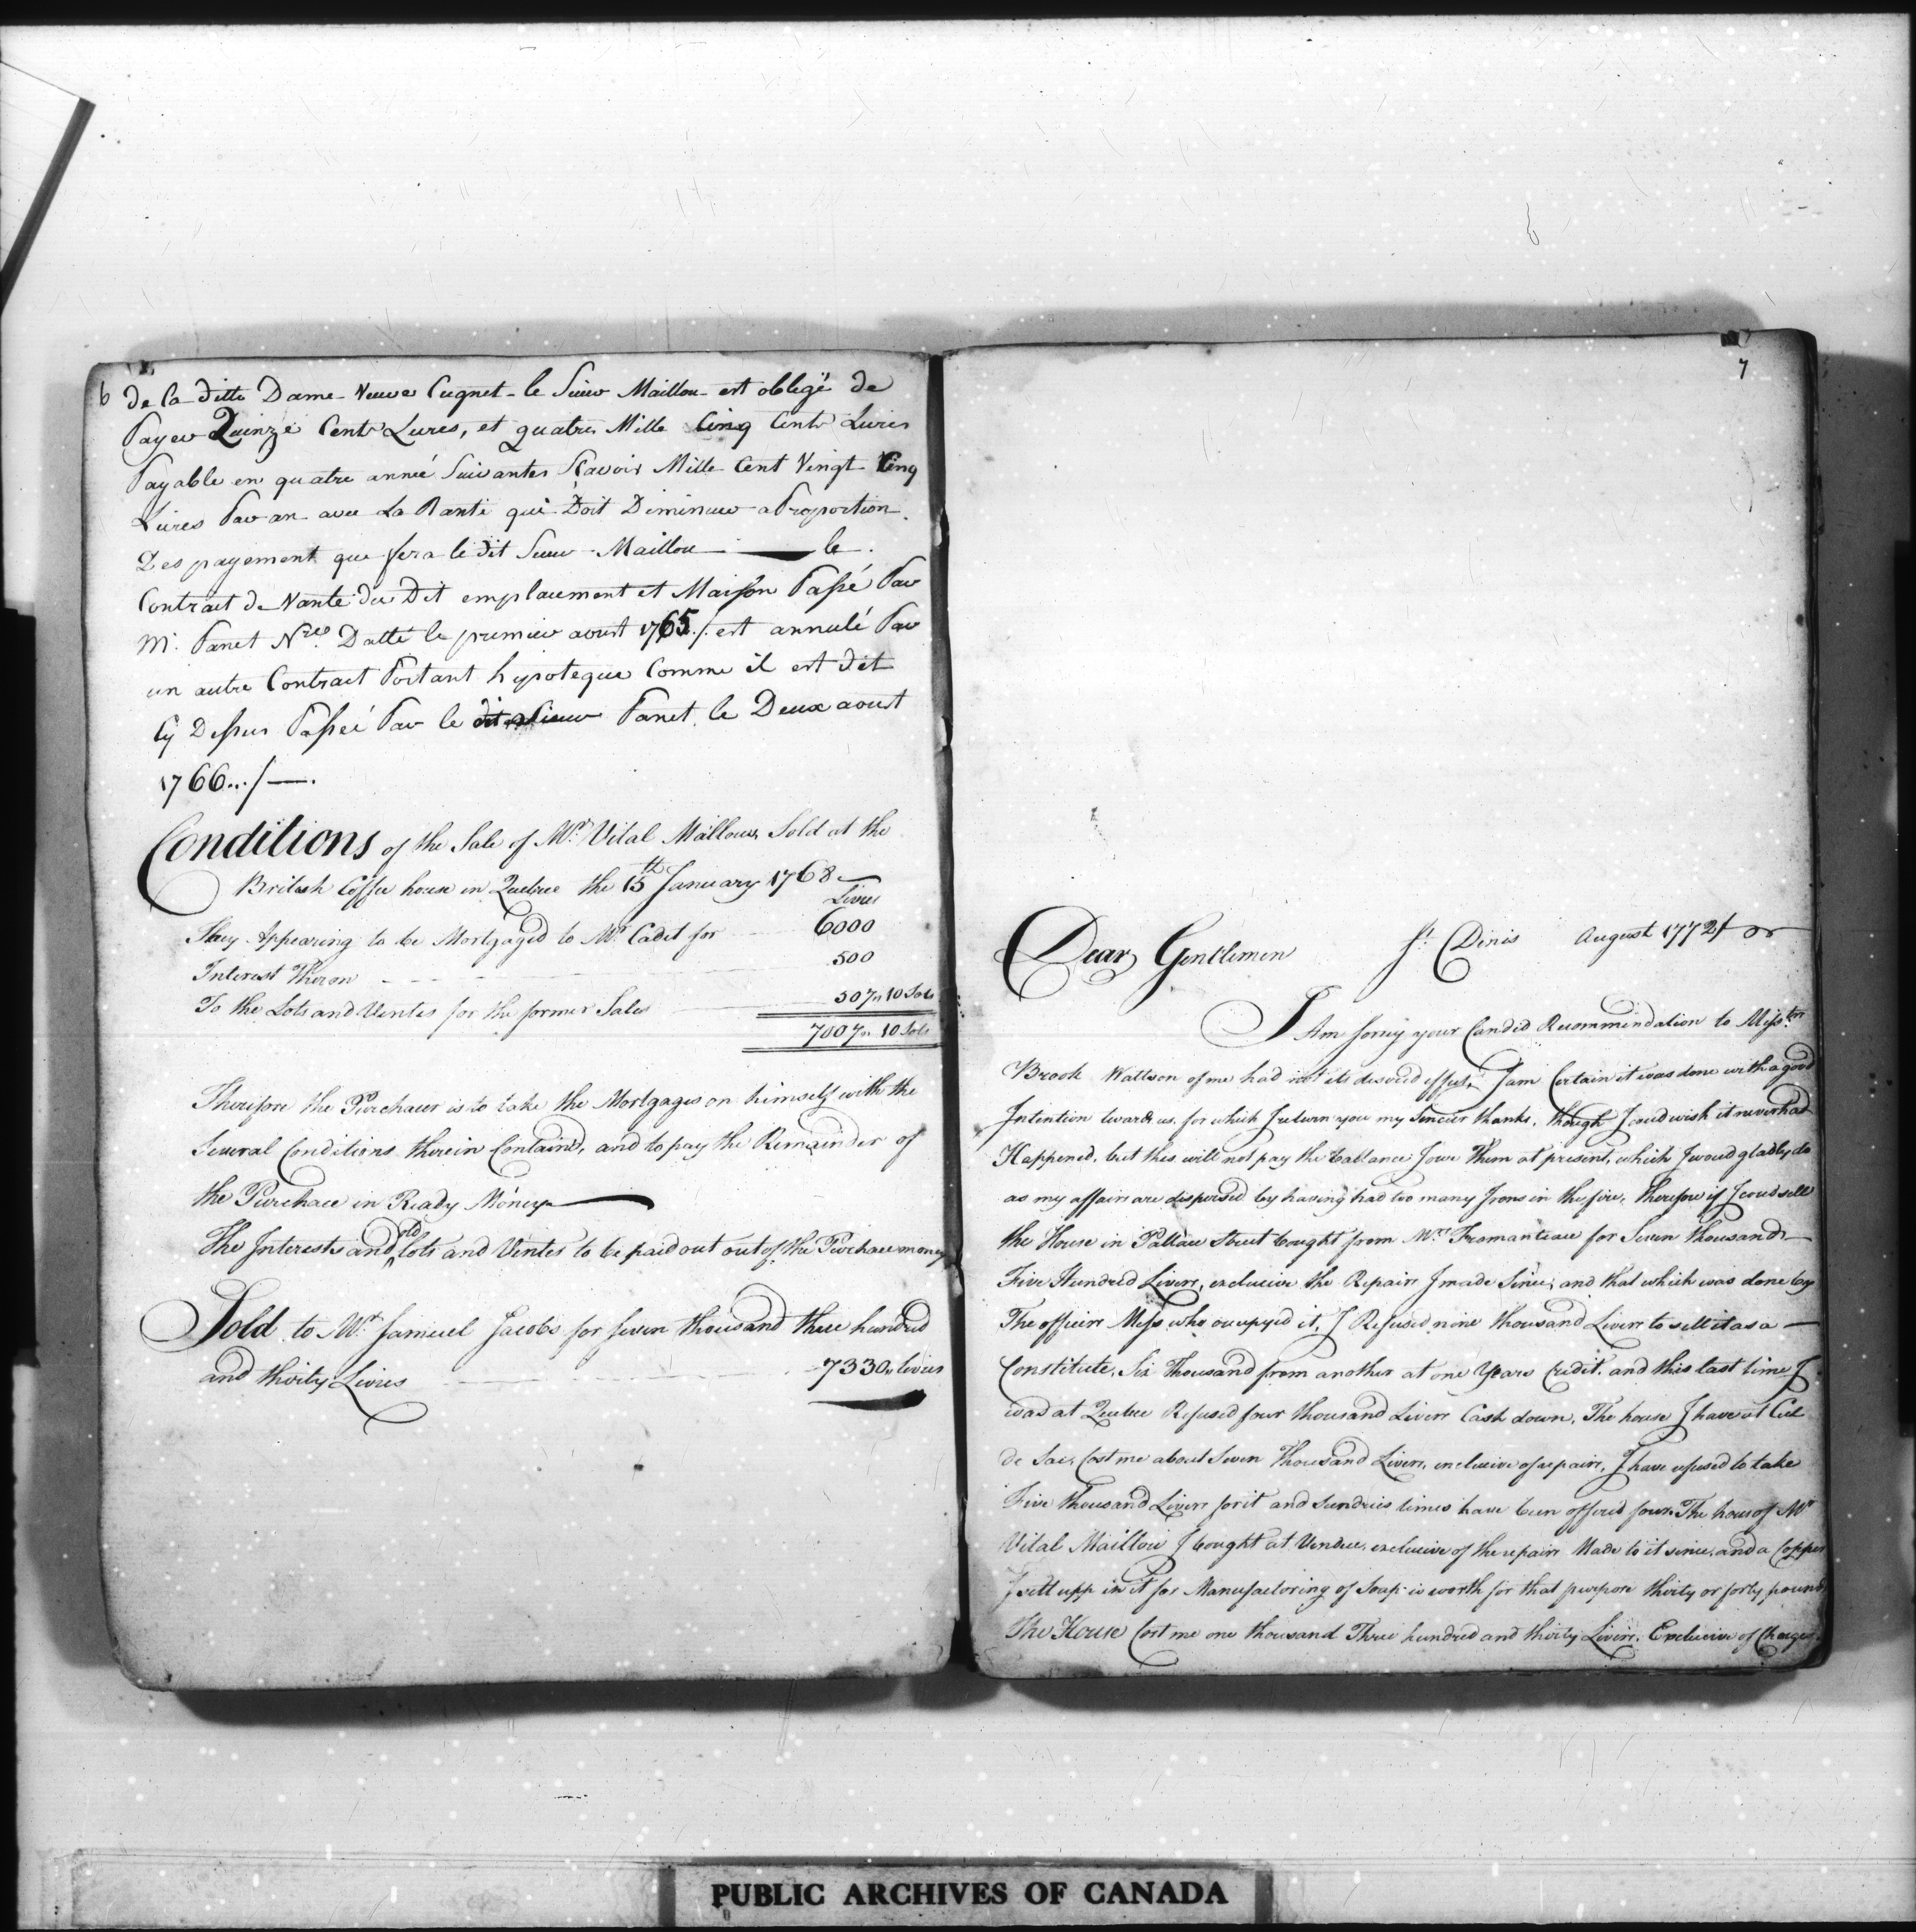 6
de la ditte Dame Veuve Cugnet le Sieur Maillou est obligé de
Payer Quinze Cents Livres, et quatre Mille Cinq Cents Livres
Payable en quatre anneé Suivantes Scavoir Mille Cent Vingt Cinq
Livres Par an avec La Rante qui Doit Diminuer a Proportion
Des payement que fera le dit Sieur Maillou — le
Contract de Vante du Dit emplacement et Maison Passé Par
Mr. Panet Nre. Datté le premier aoust 1765./. est annulé Par
un autre Contract Portant hypoteque Comme il est dit
Cy Dessus Passeé Par le Panet le Deux aoust
1766.../—.
Conditions of the Sale of Mr. Vital Mallows Sold at the
British Coffee house in Quebec the 15th January 1768
Livres
They Appearing to be Mortgaged to Mr. Cadet for 6000
Interest Theron 500
To the Lots and Ventes for the former Sales 507" 10 Sols
7007" 10 Sols
Therefore the Purchacer is to take the Mortgages on himself with the
Several Conditions therein Containd, and to pay the Remainder of
the Purchace in Ready Money
The Interests and old lots and Ventes to be paid out out of the Purchace money
Sold to Mr. Samuel Jacobs for seven thousand three hundred
and thirty Livres 7330" livres
7
Dear Gentlemen St. Dinis August 1772
I Am sorry your Candid Recommendation to Messrs
Brook Wattson of me had not its desired effect, I am Certain it was done with a good
Intention towards us, for which I return you my Sinceir thanks, though I coud wish it never had
Happened, but this will not pay the ballance I owe Them at present, which I woud gladly do
as my affairs are dispersed by having had too many Irons in the fire, therefore if I coud sell
the House in Pallace Street bought from Mr. Fromanteau for Seven thousand
Five Hundred Livers, exclusive the Repairs I made Since, and that which was done by
The officirs Mess who occupyd it, I Refused nine thousand Livers to sell it as a
Constitute, Six Thousand from another at one Years Credit, and this last time I
was at Quebec Refused four thousand Livers Cash down, The house I have at Cul
de Sac, Cost me about Seven Thousand Livers, exclusive of repairs, I have refused to take
Five thousand Livers for it and Sundries times have been offerd four. The hous of Mr
Vital Maillou I bought at Vendue, exclusive of the repairs Made to it since, and a Copper
I sett upp in it for Manufactoring of Soap is worth for that purpose thirty or forty pounds
The House Cost me one thousand Three hundred and thirty Livers, Exclusive of Charges
PUBLIC ARCHIVES OF CANADA